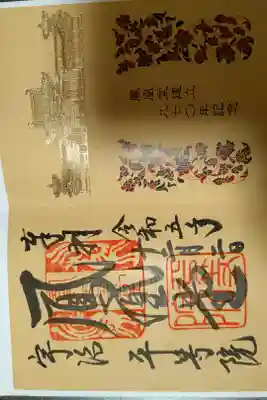 鳳凰堂建立
九七〇年記念
奉拝 令和五年
鳳凰堂
宇治 平等院